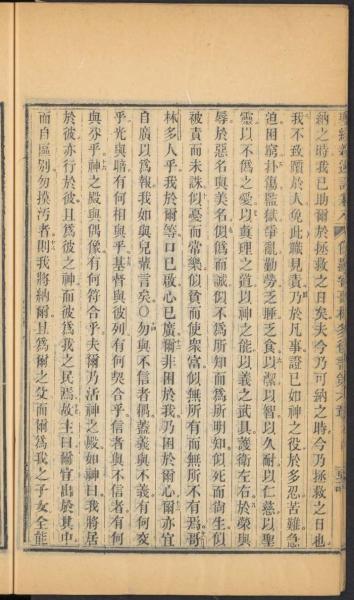 納之時我已助爾於拯救之日矣夫今乃可納之時今乃拯救之日也
我不致躓於人免此職見責乃於凡事證已如神之役於多忍苦難急
迫困窮扑傷監獄爭亂勤勞乏睡乏食以潔以智以久耐以仁慈以聖
靈以不僞之愛以眞理之道以神之能以義之武具護衛左右於榮與
辱於惡名與美名似僞而誠似不爲所知而爲所明知似死而尙生似
被責而未誅似憂而常樂似貧而使衆富似無所有而無所不有焉哥
林多人乎我於爾等口已啟心已廣爾非困於我乃困於爾心爾亦宜
自廣以爲報我如與兒輩言矣〇勿與不信者耦蓋義與不義有何交
乎光與暗有何相與乎基督與彼列有何契合乎信者與不信者有何
與分乎神之殿與偶像有何符合乎夫爾乃活神之殿如神曰我將居
於彼亦行於彼且爲彼之神而彼爲我之民焉故主曰爾宜出於其中
而自區別勿摸汚者則我將納爾且爲爾之父而爾爲我之子女全能